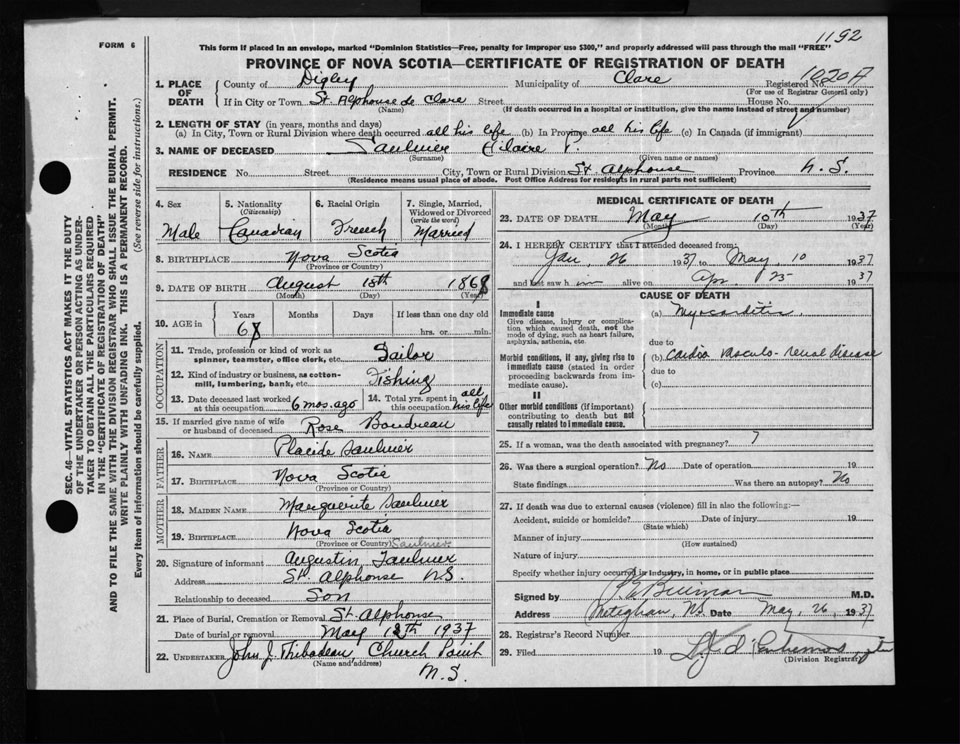 1192
FORM 6
This form if placed in an envelope, marked "Dominion Statistics—Free, penalty for improper use $300," and properly addressed will pass through the mail "FREE"
PROVINCE OF NOVA SCOTIA—CERTIFICATE OF REGISTRATION OF DEATH
1. PLACE OF DEATH
County of Digby Municipality of Clare Registered No. 1020A
(For use of Registrar General only)
If in City or Town St. Alphonse de Clare Street House No.
(Name) (If death occurred in a hospital or institution, give the name instead of street and number)
2. LENGTH OF STAY (in years, months and days)
(a) In City, Town or Rural Division where death occurred all his life (b) In Province all his life (c) In Canada (if immigrant)
3. NAME OF DECEASED Saulnier Hilaire P.
(Surname) (Given name or names)
RESIDENCE No. Street City, Town or Rural Division St. Alphonse Province N.S.
(Residence means usual place of abode. Post Office Address for residents in rural parts not sufficient)
4. Sex Male
5. Nationality (Citizenship) Canadian
6. Racial Origin French
7. Single, Married, Widowed or Divorced (write the word) Married
8. BIRTHPLACE Nova Scotia
(Province or Country)
9. DATE OF BIRTH August 18th 1868
(Month) (Day) (Year)
10. AGE in Years Months Days If less than one day old
68 hrs. or min.
OCCUPATION
11. Trade, profession or kind of work as spinner, teamster, office clerk, etc. Sailor
12. Kind of industry or business, as cotton-mill, lumbering, bank, etc. Fishing
13. Date deceased last worked at this occupation 6 mos. ago
14. Total yrs. spent in this occupation all his life
15. If married give name of wife or husband of deceased Rose Boudreau
FATHER
16. NAME Placide Saulnier
17. BIRTHPLACE Nova Scotia
(Province or Country)
MOTHER
18. MAIDEN NAME Marguerite Saulnier
19. BIRTHPLACE Nova Scotia
(Province or Country) Saulnier
20. Signature of informant Augustin Saulnier
Address St. Alphonse N.S.
Relationship to deceased Son
21. Place of Burial, Cremation or Removal St. Alphonse
Date of burial or removal May 12th 1937
22. UNDERTAKER John J. Thibodeau, Church Point
(Name and address)
N.S.
MEDICAL CERTIFICATE OF DEATH
23. DATE OF DEATH May 10th 1937
(Month) (Day) (Year)
24. I HEREBY CERTIFY that I attended deceased from:
Jan, 26 1937 to May, 10 1937
and last saw him alive on Apr. 25 1937
CAUSE OF DEATH
I
Immediate cause
Give disease, injury or complication which caused death, not the mode of dying, such as heart failure, asphyxia, asthenia, etc.
(a) Myocarditis
due to
Morbid conditions, if any, giving rise to immediate cause (stated in order proceeding backwards from immediate cause).
(b) Cardio vasculo-renal disease
due to
(c)
II
Other morbid conditions (if important) contributing to death but not causally related to immediate cause.
25. If a woman, was the death associated with pregnancy?
26. Was there a surgical operation? No Date of operation 19
State findings Was there an autopsy? No
27. If death was due to external causes (violence) fill in also the following:—
Accident, suicide or homicide? Date of injury 19
(State which)
Manner of injury
(How sustained)
Nature of injury
Specify whether injury occurred in industry, in home, or in public place
Signed by M.D.
Address Meteghan, N.S. Date May, 26, 1937
28. Registrar's Record Number
29. Filed 19
(Division Registrar)
SEC. 46—VITAL STATISTICS ACT MAKES IT THE DUTY
OF THE UNDERTAKER OR PERSON ACTING AS UNDER-
TAKER TO OBTAIN ALL THE PARTICULARS REQUIRED
IN THE "CERTIFICATE OF REGISTRATION OF DEATH"
AND TO FILE THE SAME WITH THE DIVISION REGISTRAR WHO SHALL ISSUE THE BURIAL PERMIT.
WRITE PLAINLY WITH UNFADING INK. THIS IS A PERMANENT RECORD.
Every item of information should be carefully supplied. (See reverse side for instructions.)